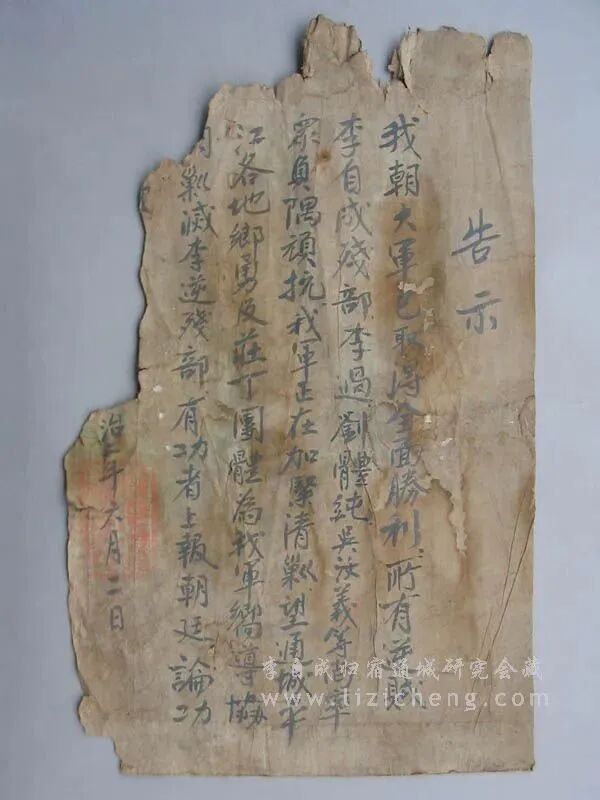 告示
我朝大軍已取得全面勝利所有逆賊
李自成殘部李過劉體純吳汝義等率
眾負隅頑抗我軍正在加緊清剿望通城平
江各地鄉勇及莊丁團體為我軍嚮導協
剿滅李逆殘部有功者上報朝廷論功
治二年六月二日
李自成归宿通城研究会藏
www.lizicheng.com